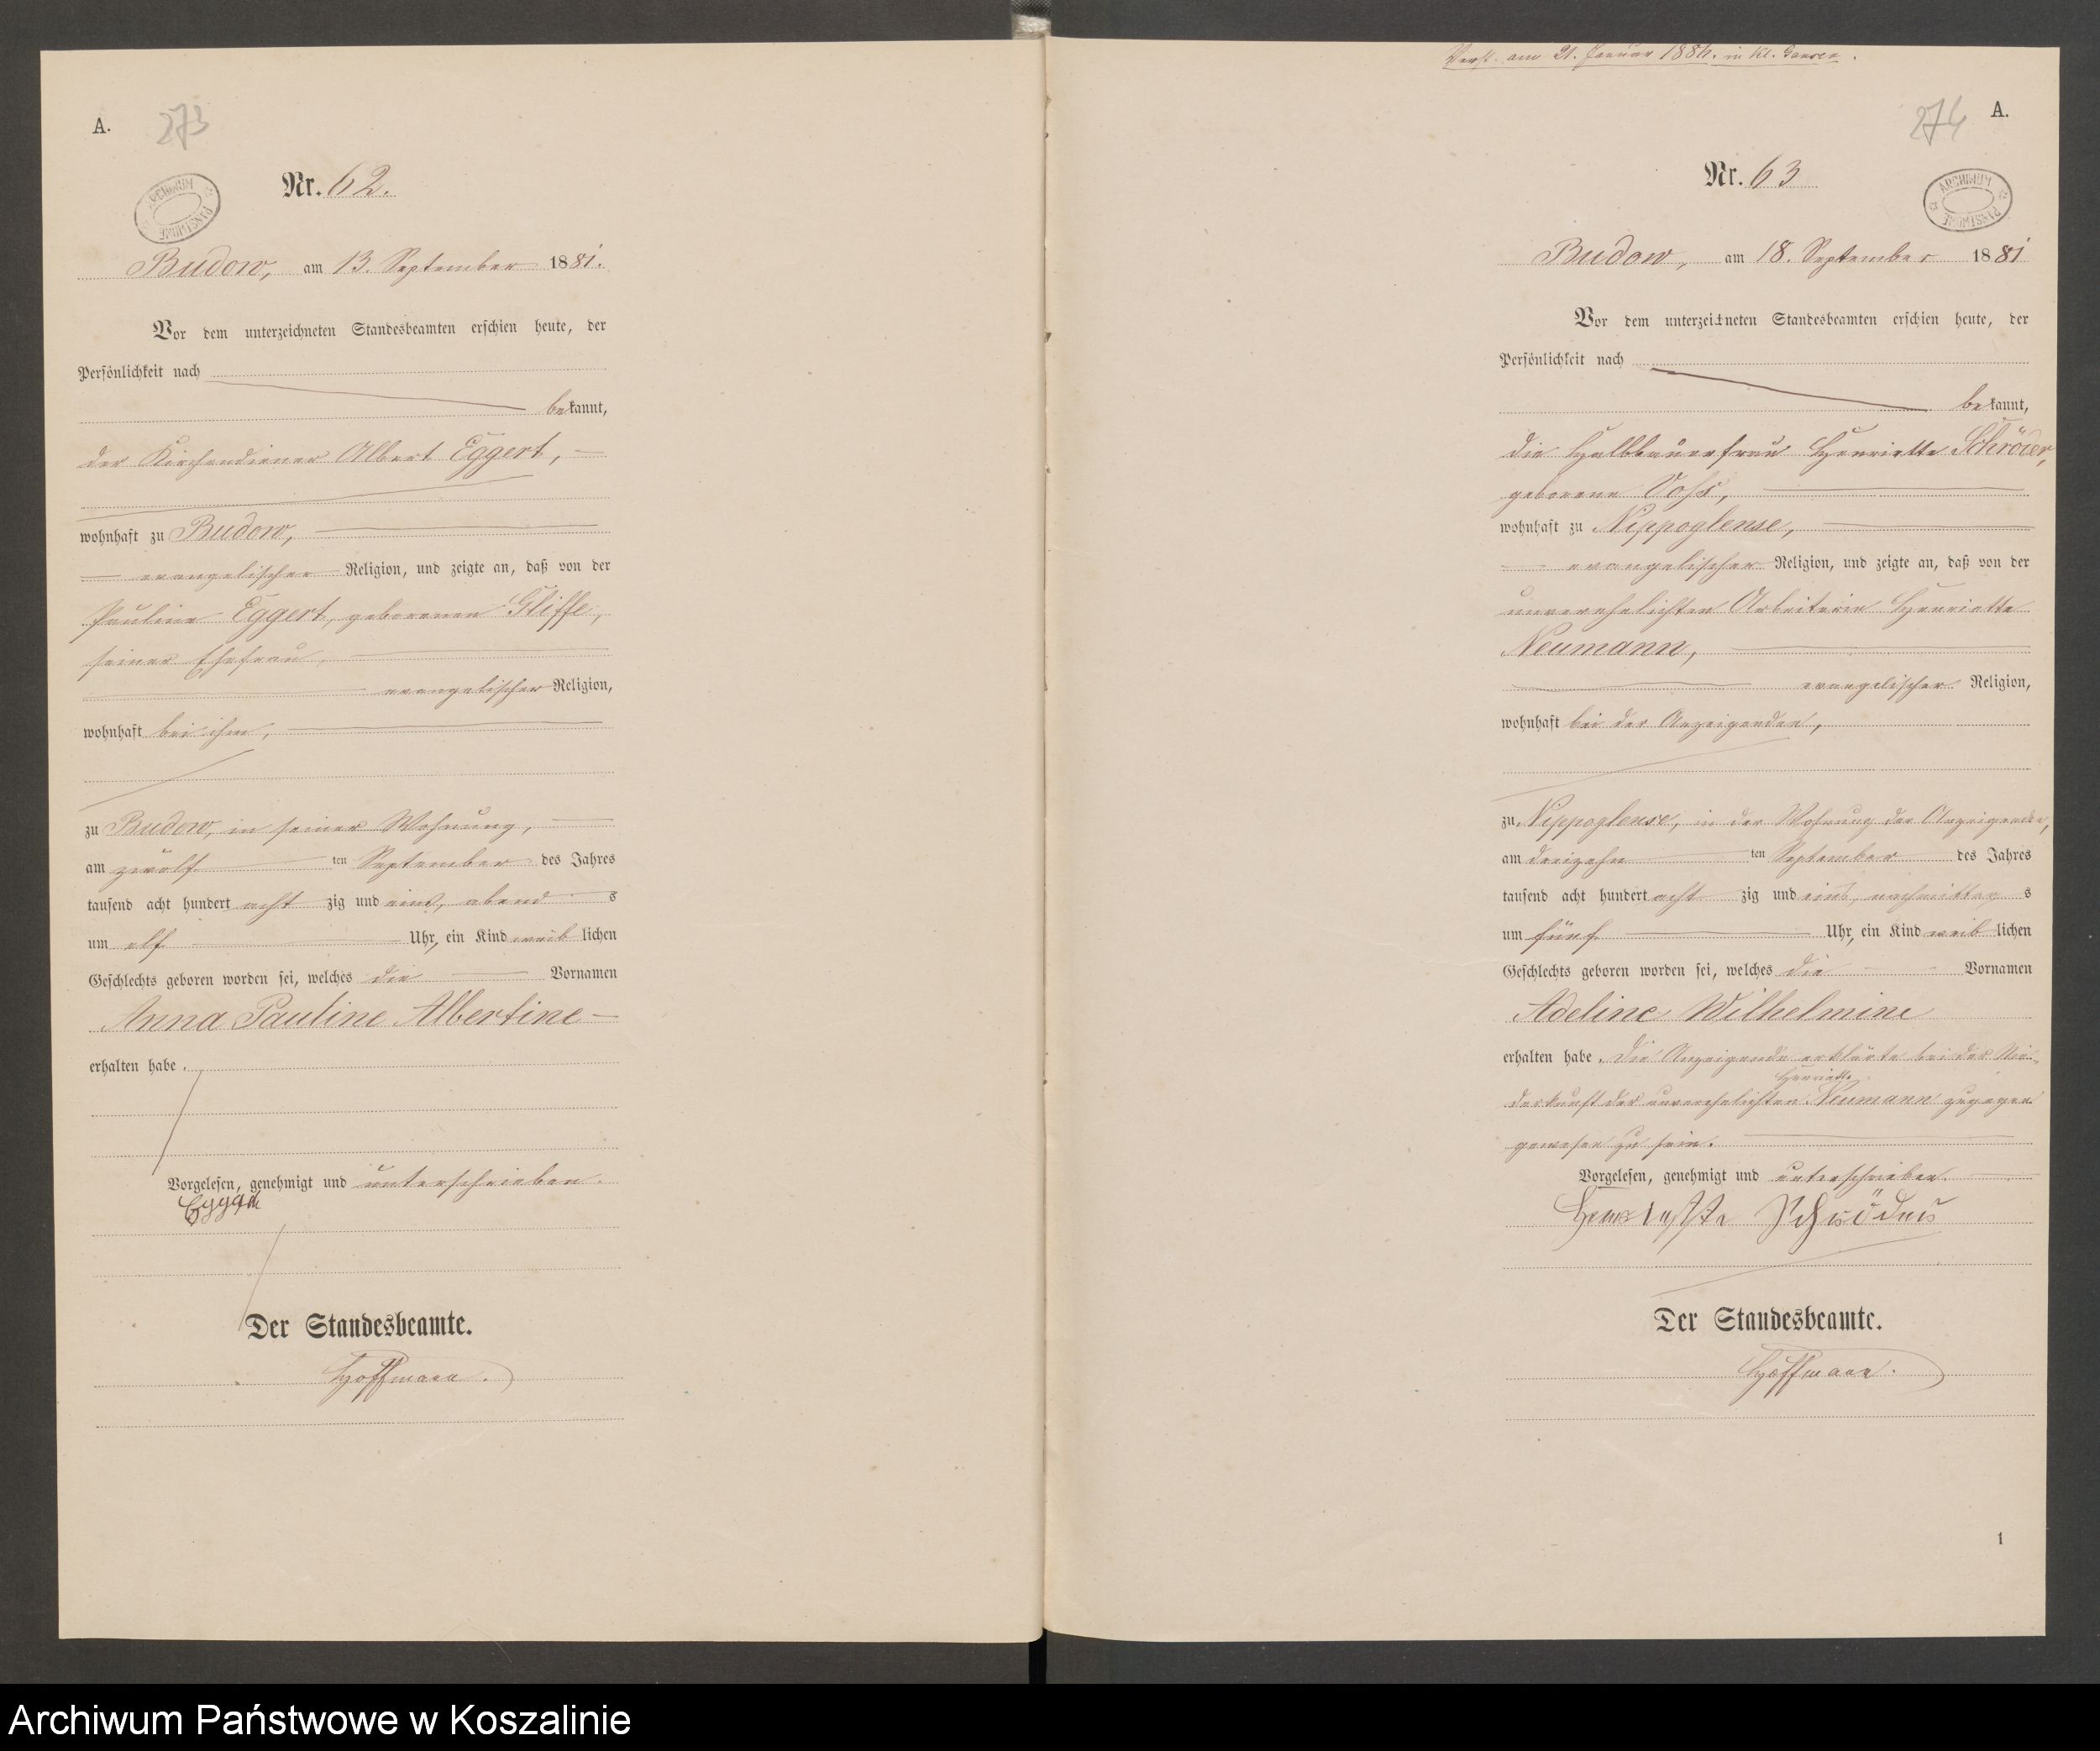 A.
273
ARCHIWUM PAŃSTWOWE
Nr. 62.
Budow, am 13. September 1881.
Vor dem unterzeichneten Standesbeamten erschien heute, der
Persönlichkeit nach
bekannt,
der Kirchendiener Albert Eggert,
wohnhaft zu Budow,
evangelischer Religion, und zeigte an, daß von der
Pauline Eggert, geborenen Gliffe,
seiner Ehefrau,
evangelischer Religion,
wohnhaft bei ihm,
zu Budow, in seiner Wohnung,
am zwölf ten September des Jahres
tausend acht hundert acht zig und eins, abend s
um elf Uhr, ein Kind weib lichen
Geschlechts geboren worden sei, welches die Vornamen
Anna Pauline Albertine
erhalten habe.
Vorgelesen, genehmigt und unterschrieben.
Eggert
Der Standesbeamte.
Hoffmann.
Verst. am 21. Januar 1884. in Kl. Gansen.
274
A.
Nr. 63
ARCHIWUM PAŃSTWOWE
Budow, am 18. September 1881
Vor dem unterzeichneten Standesbeamten erschien heute, der
Persönlichkeit nach
bekannt,
die Halbbauerfrau Henriette Schröder,
geborene Voß,
wohnhaft zu Nippoglense,
evangelischer Religion, und zeigte an, daß von der
unverehelichten Arbeiterin Henriette
Neumann,
evangelischer Religion,
wohnhaft bei der Anzeigenden,
zu Nippoglense, in der Wohnung der Anzeigenden,
am dreizehn ten September des Jahres
tausend acht hundert acht zig und eins, nachmittag s
um fünf Uhr, ein Kind weib lichen
Geschlechts geboren worden sei, welches die Vornamen
Adeline Wilhelmine
erhalten habe. Die Anzeigende erklärte bei der Nie-
Henriette
derkunft der unverehelichten Neumann zugegen
gewesen zu sein.
Vorgelesen, genehmigt und unterschrieben.
Henriette Schröder
Der Standesbeamte.
Hoffmann.
1
Archiwum Państwowe w Koszalinie